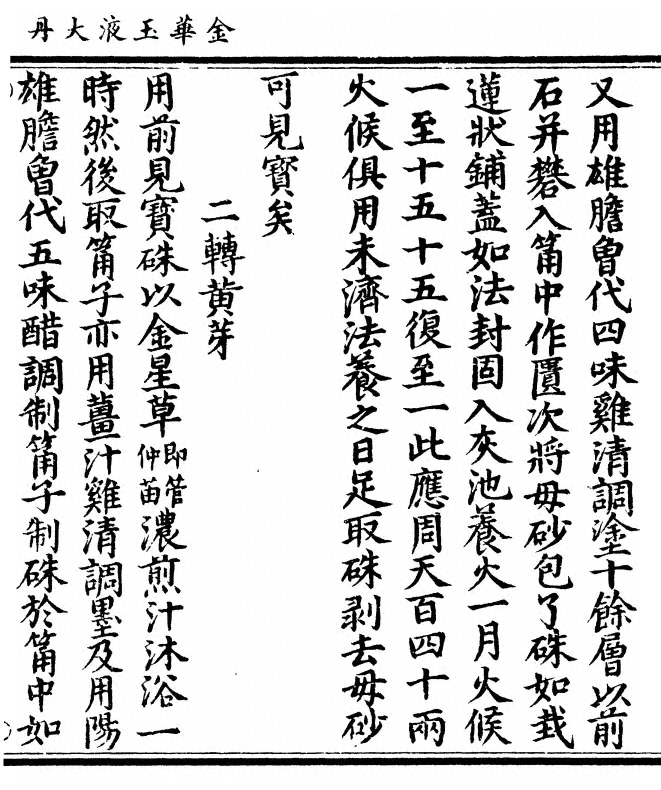 金華玉液大丹
又用雄膽曾代四味雞清調塗十餘層以前
石并礬入筩中作匱次將毋砂包了硃如㘽
蓮狀鋪蓋如法封固入灰池養火一月火候
一至十五十五復至一此應周天百四十兩
火候俱用未濟法養之日足取硃剥去毋砂
可見寶矣
二轉黄芽
用前見寶硃以金星草即管仲苗濃煎汁沐浴一
時然後取筩子亦用薑汁雞清調墨及用陽
雄膽曾代五味醋調制筩子制硃於筩中如